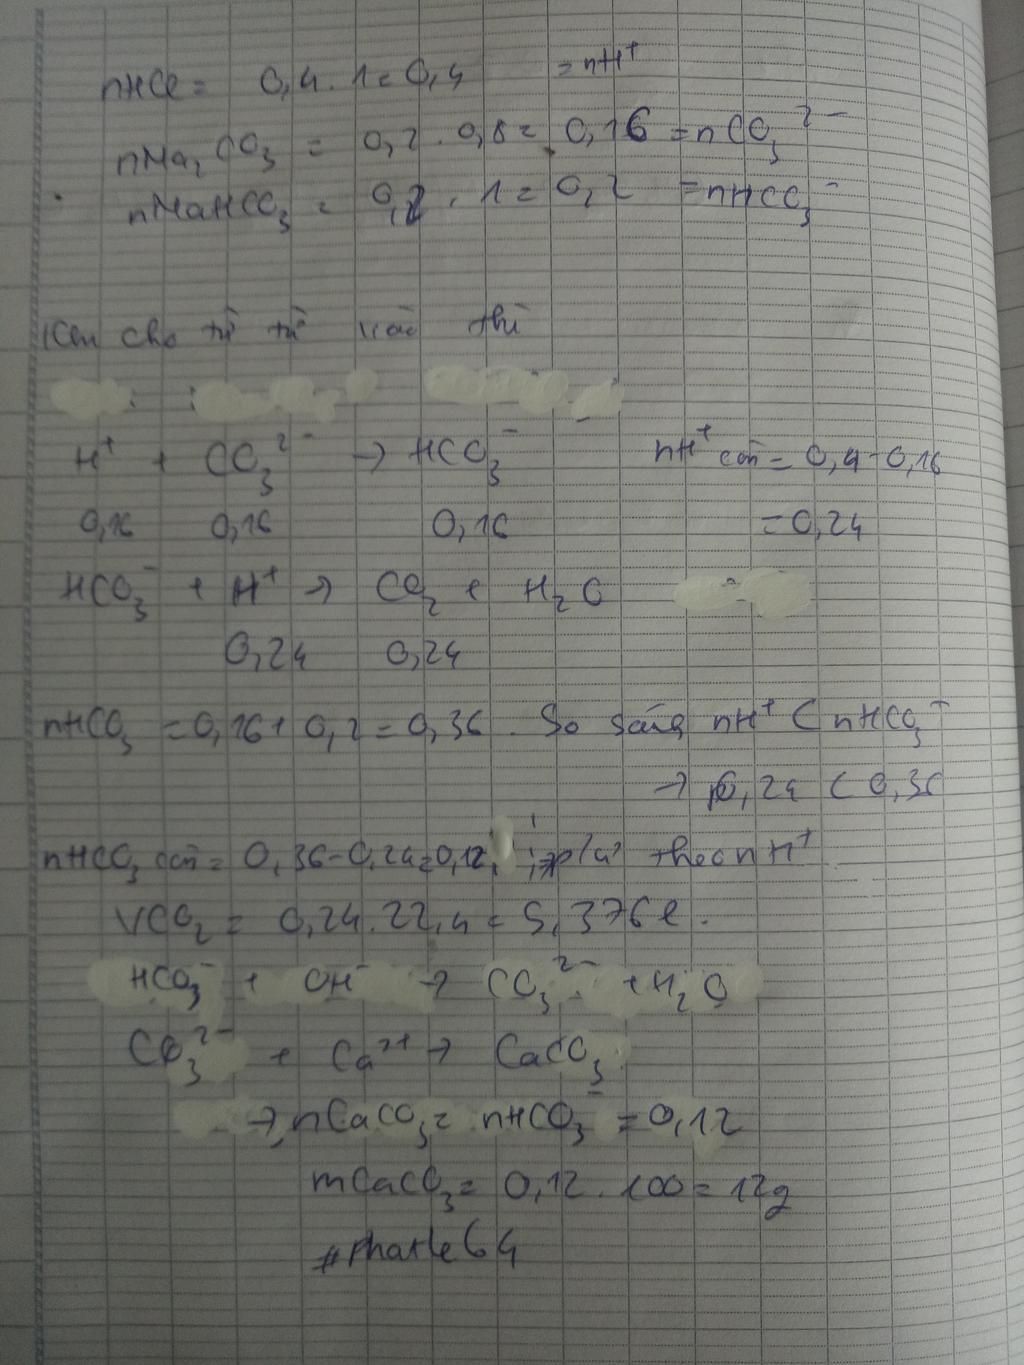 nHCl = 0,4 . 1 = 0,4 = nH⁺
nNa₂CO₃ = 0,2 . 0,8 = 0,16 = nCO₃²⁻
nNaHCO₃ = 0,2 . 1 = 0,2 = nHCO₃⁻
Khi cho từ từ vào thì
H⁺ + CO₃²⁻ → HCO₃⁻ nH⁺ còn = 0,4 - 0,16
0,16 0,16 0,16 = 0,24
HCO₃⁻ + H⁺ → CO₂ + H₂O
0,24 0,24
nHCO₃ = 0,16 + 0,2 = 0,36. So sánh nH⁺ < nHCO₃⁻
→ 0,24 < 0,36
nHCO₃ còn = 0,36 - 0,24 = 0,12, theo nH⁺
VCO₂ = 0,24 . 22,4 = 5,376 l.
HCO₃⁻ + OH⁻ → CO₃²⁻ + H₂O
CO₃²⁻ + Ca²⁺ → CaCO₃
→ nCaCO₃ = nHCO₃⁻ = 0,12
mCaCO₃ = 0,12 . 100 = 12g
#phatle64